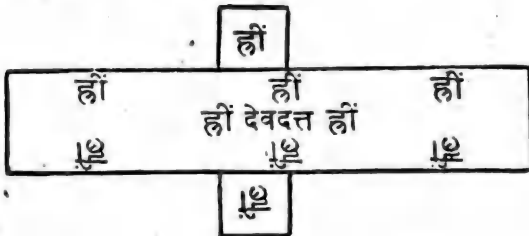 ह्रीं
ह्रीं ह्रीं ह्रीं
ह्रीं देवदत्त ह्रीं
ह्रीं ह्रीं ह्रीं
ह्रीं